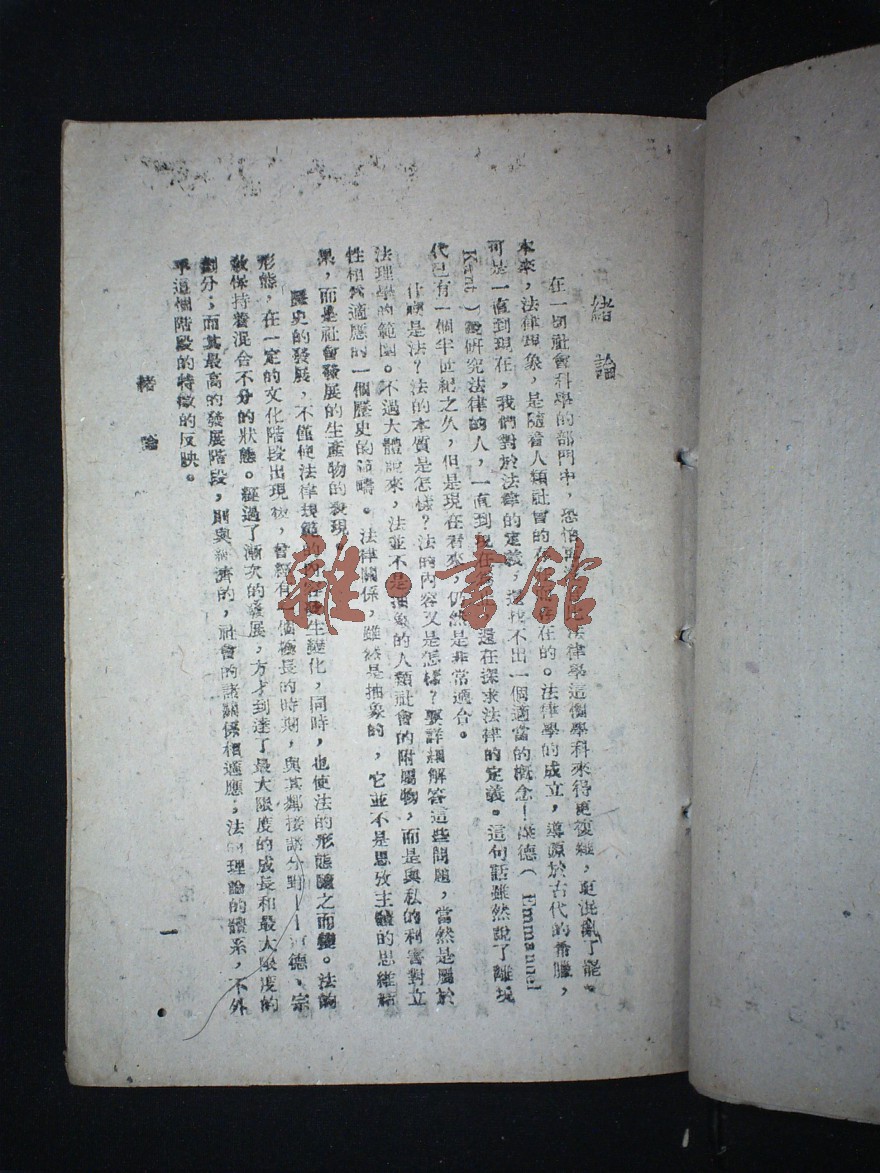 緒論
在一切社會科學的部門中，恐怕 法律學這個學科來得更複雜，更混亂了罷。
本來，法律現象，是隨着人類社會的存 存在的。法律學的成立，導源於古代的希臘，
可是一直到現在，我們對於法律的定義，還找不出一個適當的概念！康德（Emmannel
Kant）說研究法律的人，一直到現在 還在探求法律的定義。這句話雖然說了離現
代已有一個半世紀之久，但是現在看來，仍然是非常適合。
什麼是法？法的本質是怎樣？法的內容又是怎樣？要詳細解答這些問題，當然是屬於
法理學的範圍。不過大體說來，法並不是抽象的人類社會的附屬物，而是與私的利害對立
性相為適應的一個歷史的範疇。法律關係，雖然是抽象的，它並不是思攷主體的思維結
果，而是社會發展的生產物的表現。
歷史的發展，不僅使法律規範的內容發生變化，同時，也使法的形態隨之而變。法的
形態，在一定的文化階段出現後，曾經有一個極長的時期，與其鄰接諸分野——道德、宗
教保持着混合不分的狀態。經過了漸次的發展，方才到達了最大限度的成長和最大限度的
劃分；而其最高的發展階段，則與經濟的，社會的諸關係相適應；法的理論的體系，不外
乎這個階段的特徵的反映。
緒論
一
雜·書館